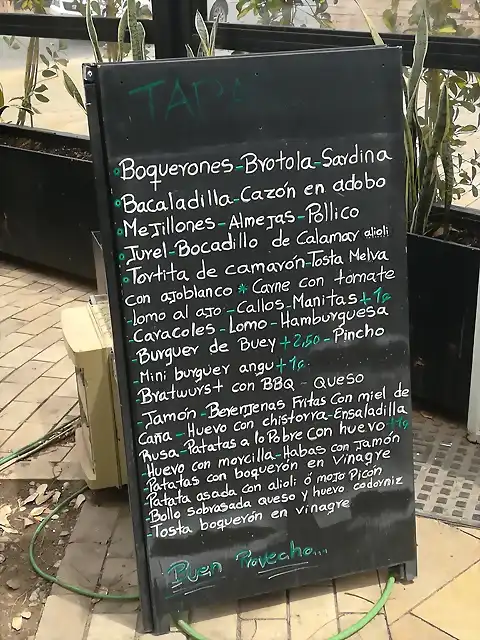 TAPA
Boquerones-Brotola-Sardina
Bacaladilla-Cazón en adobo
Mejillones-Almejas-Pollico
Jurel-Bocadillo de Calamar alioli
Tortita de camarón-Tosta Melva
con ajoblanco * Carne con tomate
-lomo al ajo-Callos-Manitas+1€
-Caracoles-Lomo-Hamburguesa
-Burguer de Buey+2,50-Pincho
-Mini burguer angu+1€
Bratwurst con BBQ-Queso
-Jamón-Berenjenas Fritas con miel de
Caña-Huevo con chistorra-Ensaladilla
Rusa-Patatas a lo Pobre con huevo+1€
-Huevo con morcilla-Habas con Jamón
-Patatas con boquerón en vinagre
-Patata asada con alioli ó mojo Picón
-Bollo sobrasada queso y huevo codorniz
-Tosta boquerón en vinagre
Buen Provecho...